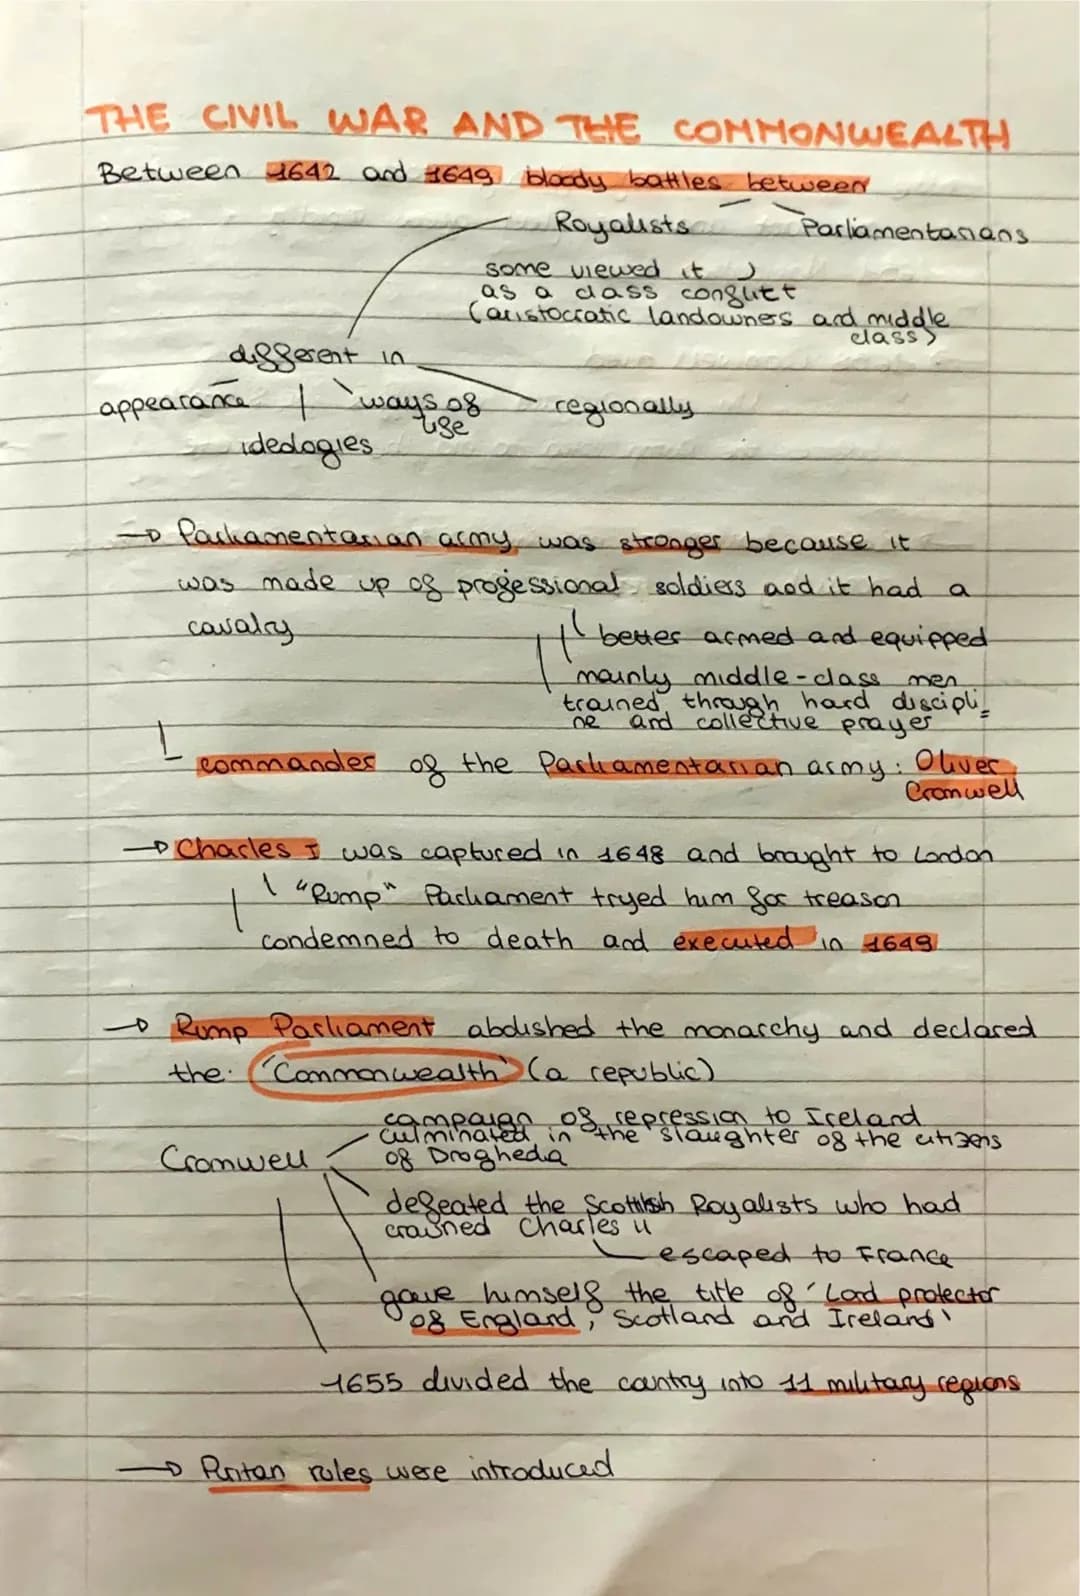 THE CIVIL WAR AND THE COMMONWEALTH
Between 1642 and 1649 bloody battles between
Royalists Parliamentarians
some viewed it
as a class conflict
(aristocratic landowners and middle
class)
different in
appearance ways of regionally
life
ideologies
Parliamentarian army was stronger because it
was made up of professional soldiers and it had a
cavalry
better armed and equipped
mainly middle-class men
trained through hard discipli_
ne and collective prayer
commander of the Parliamentarian army: Oliver
Cromwell
Charles I was captured in 1648 and brought to London
"Rump" Parliament tryed him for treason
condemned to death and executed in 1649
Rump Parliament abolished the monarchy and declared
the 'Commonwealth' (a republic)
campaign of repression to Ireland
culminated in the slaughter of the citizens
Cromwell of Drogheda
defeated the Scottish Royalists who had
crowned Charles II
escaped to France
gave himself the title of 'Lord protector
of England, Scotland and Ireland'
1655 divided the country into 11 military regions
Puritan rules were introduced